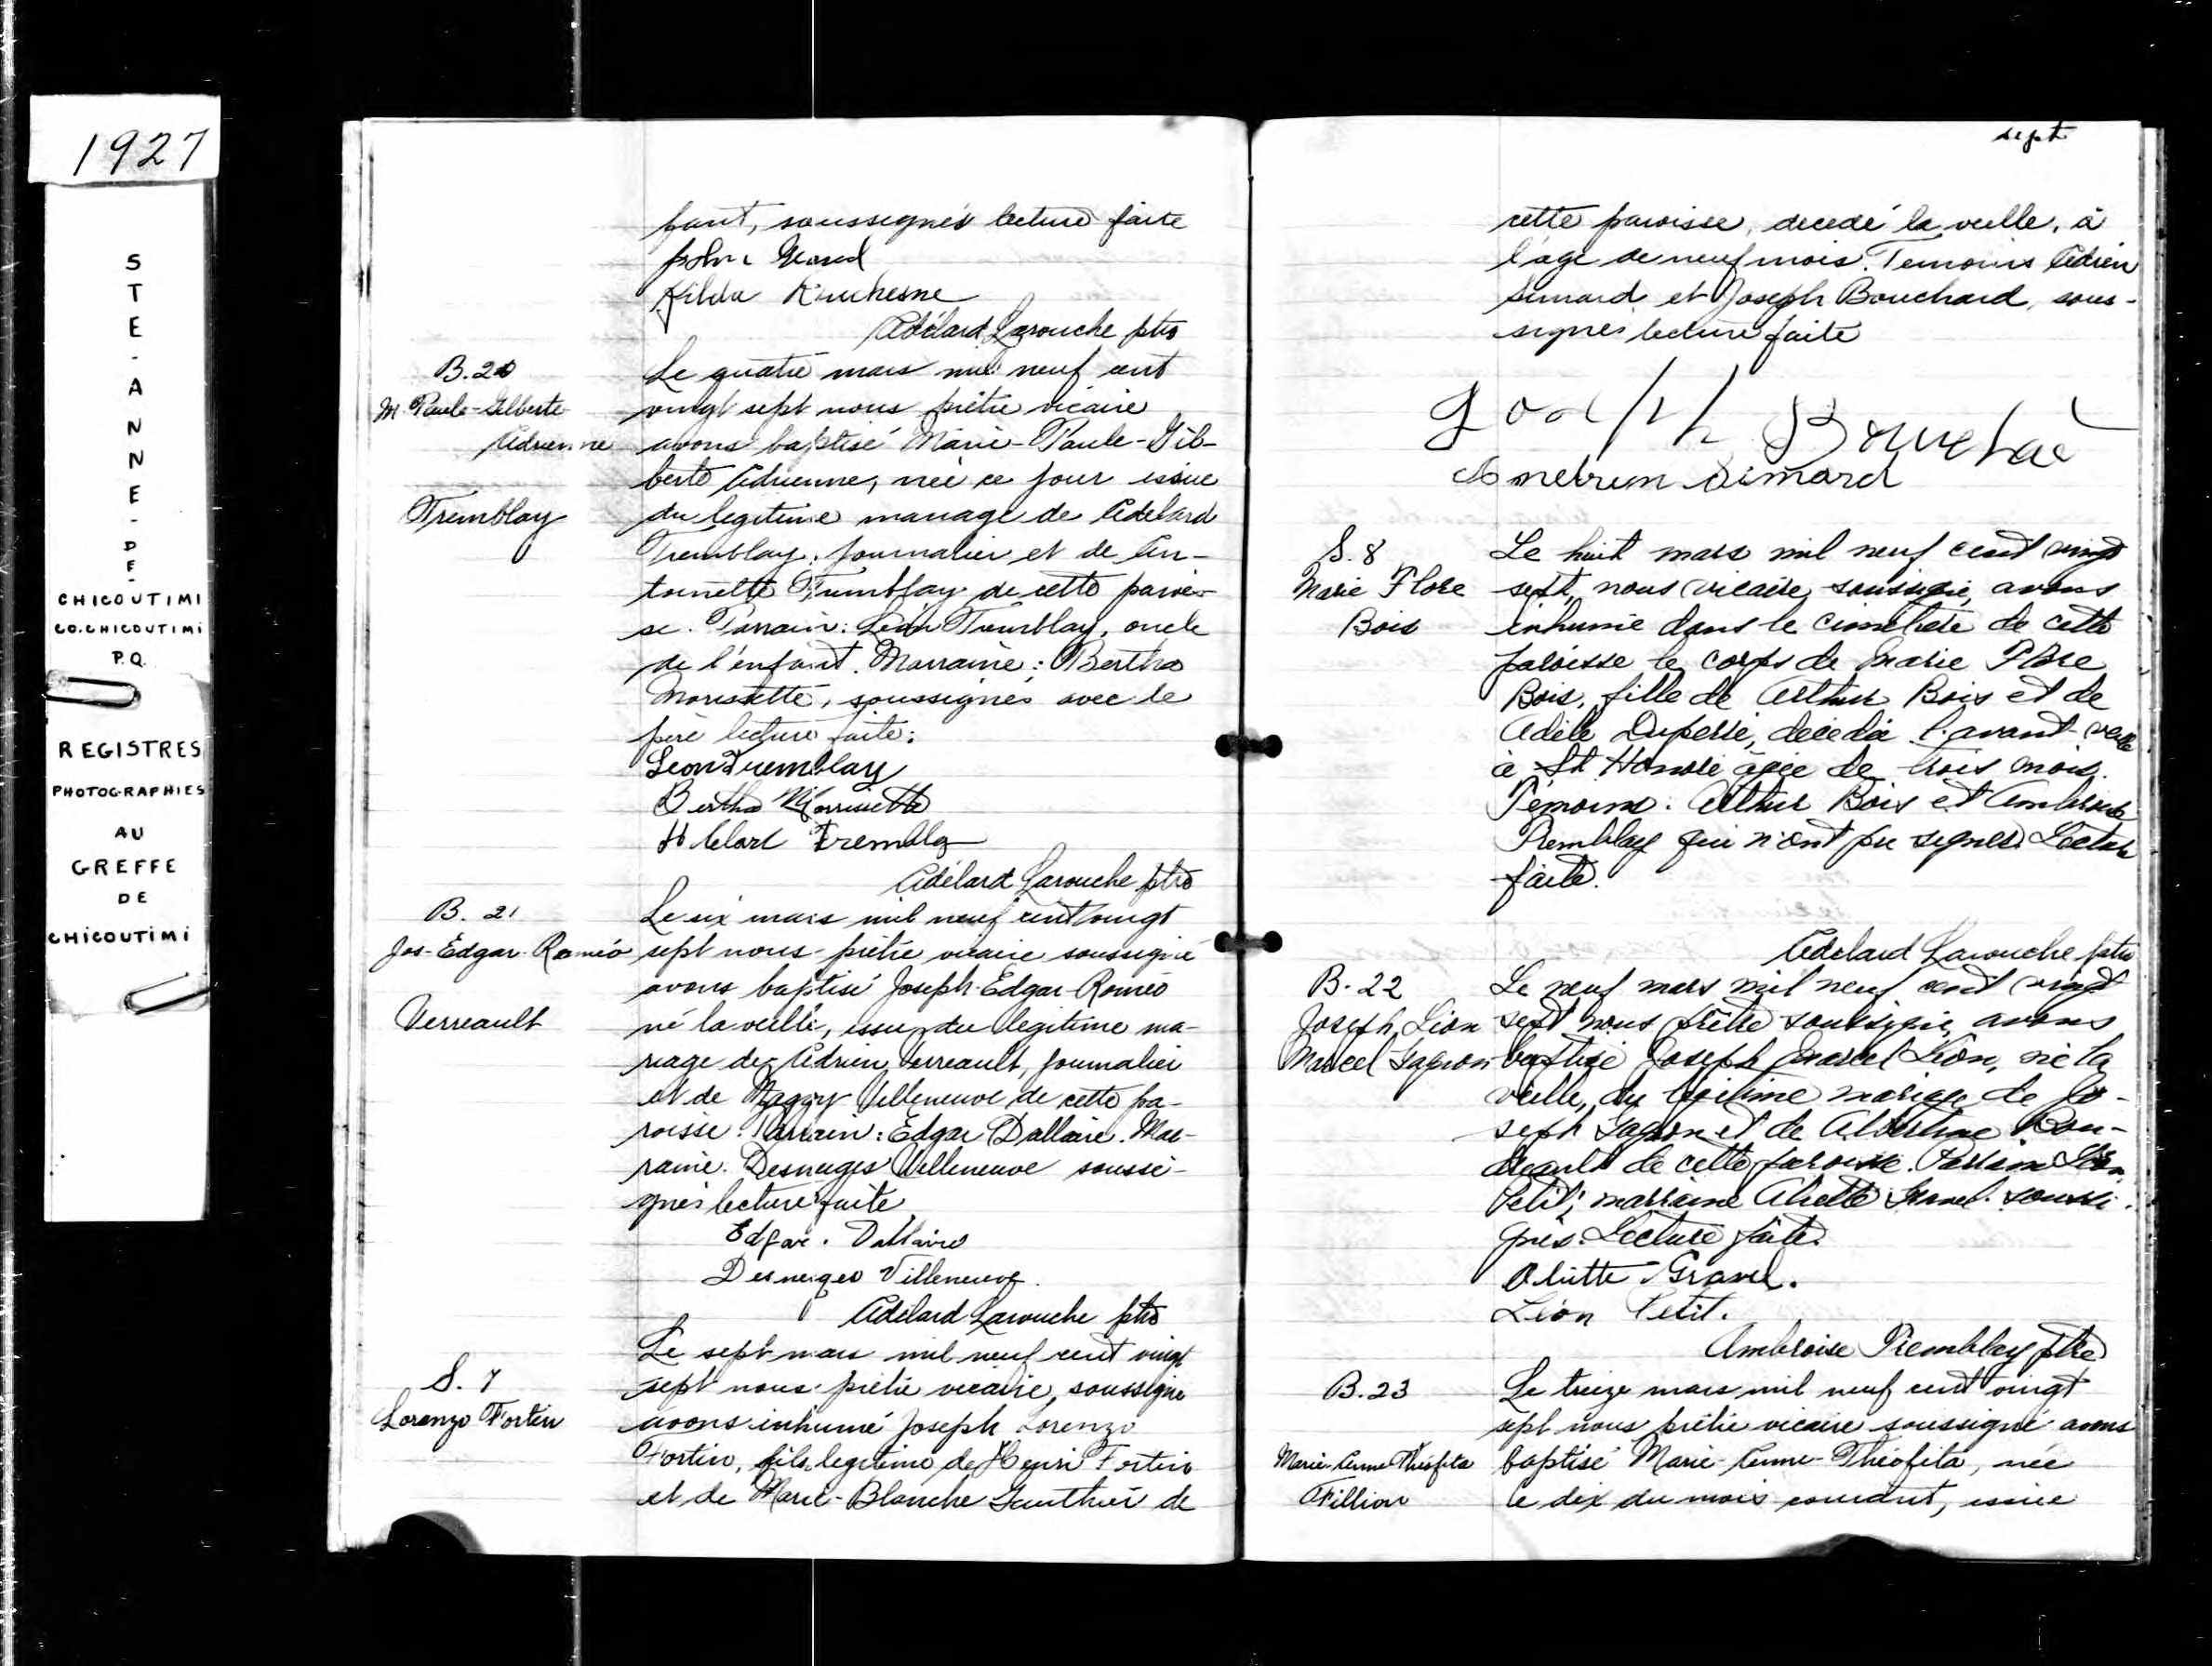 1927
STE-ANNE-DE-
CHICOUTIMI
CO. CHICOUTIMI
P.Q.
REGISTRES
PHOTOGRAPHIES
AU
GREFFE
DE
CHICOUTIMI
fant, soussignés lecture faite
John
Hilda Duchesne
Adélard Larouche ptre
B. 20
M. Paule-Gilberte
Adrienne
Tremblay
Le quatre mars mil neuf cent
vingt sept nous prêtre vicaire
avons baptisé Marie-Paule-Gil-
berte Adrienne, née ce jour issue
du legitime mariage de Adelard
Tremblay, journalier et de An-
toinette Tremblay de cette parois-
se. Parrain: Léon Tremblay, oncle
de l'enfant. Marraine: Bertha
Morissette, soussignés avec le
père lecture faite:
Leon Tremblay
Bertha Morrissette
Tremblay
Adélard Larouche ptre
B. 21
Jos-Edgar-Roméo
Verreault
Le six mars mil neuf cent vingt
sept nous prêtre vicaire soussigné
avons baptisé Joseph-Edgar-Roméo
né la veille, issu du legitime ma-
riage de Adrien Verreault, journalier
et de Maggy Villeneuve de cette pa-
roisse. Parrain: Edgar Dallaire. Mar-
raine. Desneiges Villeneuve soussi-
gnés lecture faite
Edgar. Dallaire
Desneiges Villeneuve.
Adélard Larouche ptre
S. 7
Lorenzo Fortin
Le sept mars mil neuf cent vingt
sept nous prêtre vicaire, soussigné
avons inhumé Joseph Lorenzo
Fortin, fils legitime de Henri Fortin
et de Marie-Blanche Gauthier de
sept
cette paroisse, decedé la veille, à
l'age de neuf mois. Temoins Adrien
Simard et Joseph Bouchard, sous-
signés lecture faite
Joseph Bouchar
Simard
S. 8
Marie Flore
Bois
Le huit mars mil neuf cent vingt
sept, nous vicaire soussigné, avons
inhumé dans le cimetière de cette
paroisse le corps de Marie Flore
Bois, fille de Arthur Bois et de
Adèle Duperré, décédée l'avant-veille
à St Honoré agée de trois mois.
Témoins: Arthur Bois et Ambroise
Tremblay qui n'ont pu signer. Lecture
faite.
Adelard Larouche ptre
B. 22
Joseph, Léon
Marcel Gagnon
Le neuf mars mil neuf cent vingt
sept nous prêtre soussigné, avons
baptisé Joseph Marcel Léon, né la
veille, du légitime mariage de Jo-
seph Gagnon et de Albertine Bou-
dreault de cette paroisse. Parrain Léon
Petit; marraine Gravel. soussi-
gnés. Lecture faite.
Gravel.
Léon Petit.
Ambroise Tremblay ptre
B. 23
Marie-Anne Théofila
Fillion
Le treize mars mil neuf cent vingt
sept nous prêtre vicaire soussigné avons
baptisé Marie-Anne-Théofila, née
le dix du mois courant, issue